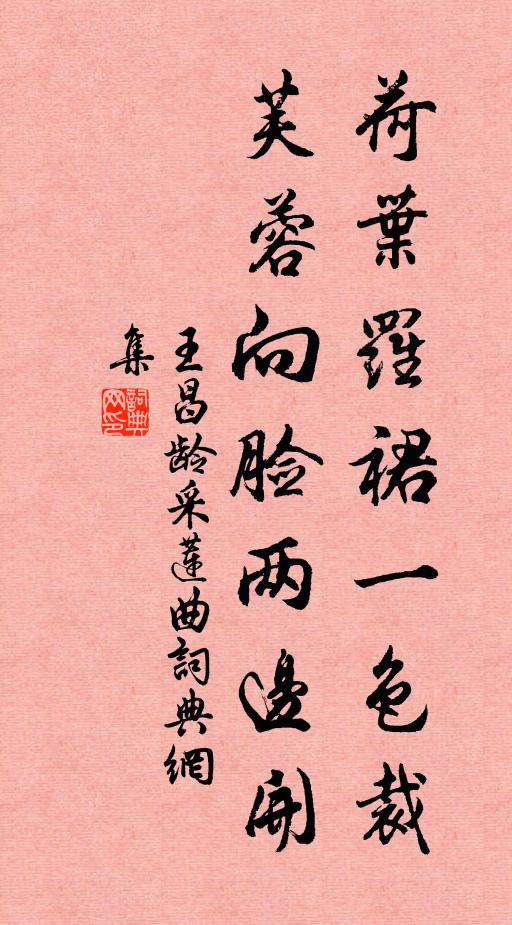 荷葉羅裙一色裁
芙蓉向脸两邊開
王昌龄采蓮曲詞典網
集
詞典
网印